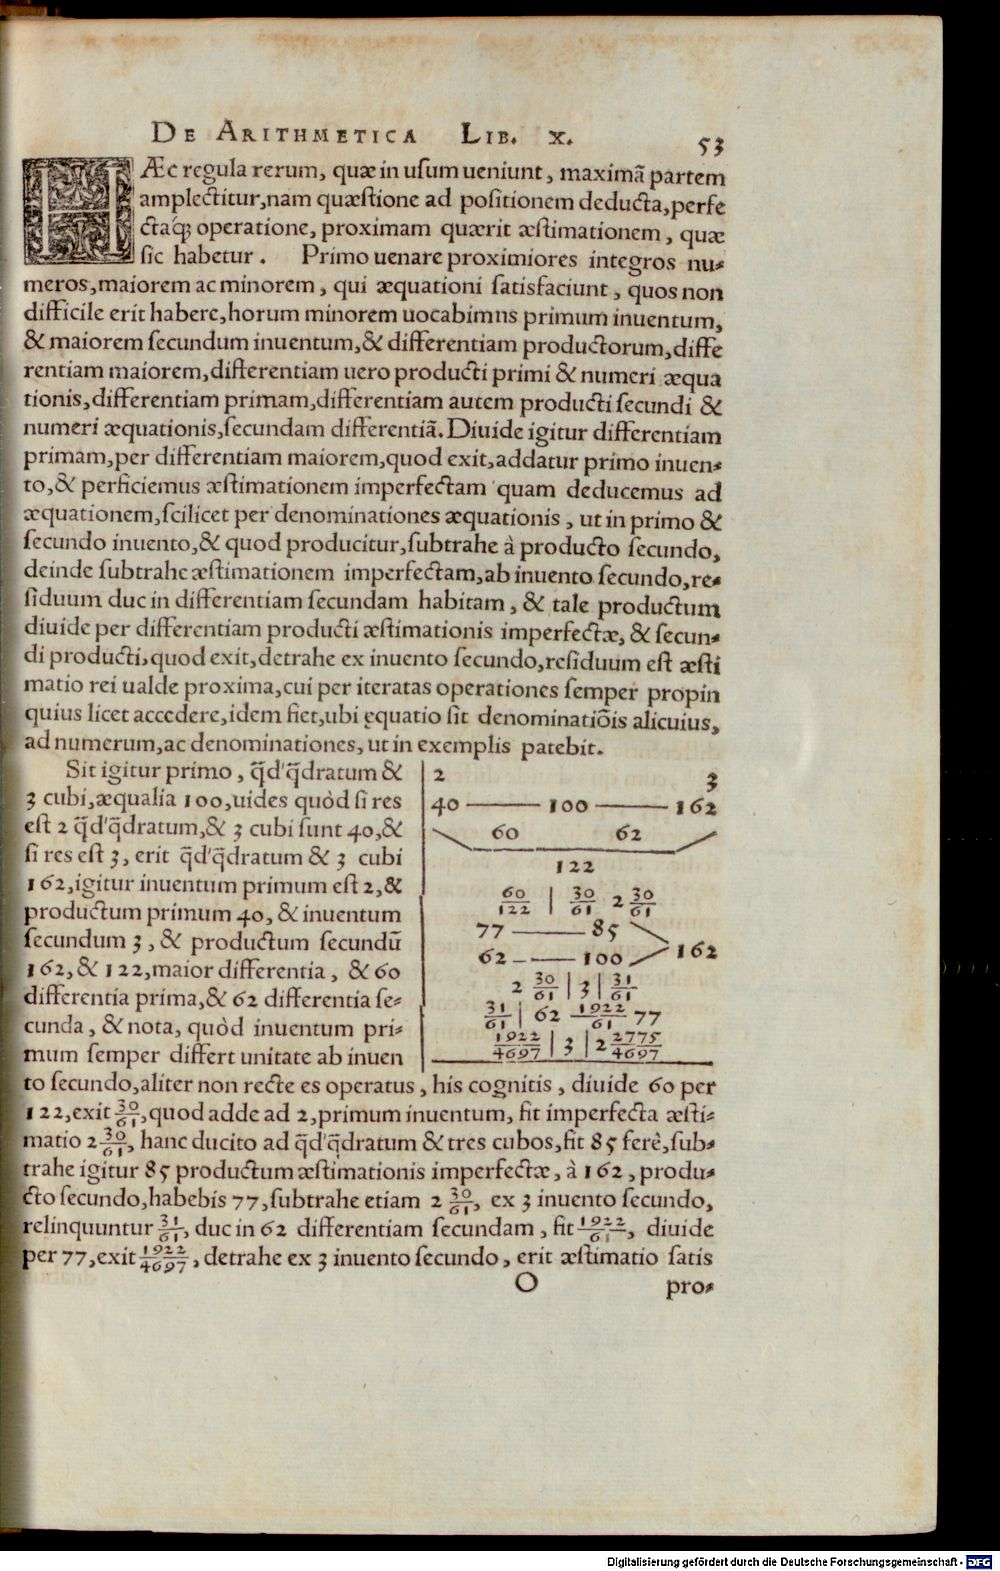 DE ARITHMETICA LIB. X. 53
HÆc regula rerum, quæ in uſum ueniunt, maximã partem
amplectitur, nam quæſtione ad poſitionem deducta, perfe
ctaq́; operatione, proximam quærit æſtimationem, quæ
ſic habetur. Primo uenare proximiores integros nu⸗
meros, maiorem ac minorem, qui æquationi ſatisfaciunt, quos non
difficile erit habere, horum minorem uocabimns primum inuentum,
& maiorem ſecundum inuentum, & differentiam productorum, diffe
rentiam maiorem, differentiam uero producti primi & numeri æqua
tionis, differentiam primam, differentiam autem producti ſecundi &
numeri æquationis, ſecundam differentiã. Diuide igitur differentiam
primam, per differentiam maiorem, quod exit, addatur primo inuen⸗
to, & perficiemus æſtimationem imperfectam quam deducemus ad
æquationem, ſcilicet per denominationes æquationis, ut in primo &
ſecundo inuento, & quod producitur, ſubtrahe à producto ſecundo,
deinde ſubtrahe æſtimationem imperfectam, ab inuento ſecundo, re⸗
ſiduum duc in differentiam ſecundam habitam, & tale productum
diuide per differentiam producti æſtimationis imperfectæ, & ſecun⸗
di producti, quod exit, detrahe ex inuento ſecundo, reſiduum eſt æſti
matio rei ualde proxima, cui per iteratas operationes ſemper propin
quius licet accedere, idem fiet, ubi ęquatio ſit denominatiõis alicuius,
ad numerum, ac denominationes, ut in exemplis patebit.
Sit igitur primo, q̃d'q̃dratum &
3 cubi, æqualia 100, uides quòd ſi res
eſt 2 q̃d'q̃dratum, & 3 cubi ſunt 40, &
ſi res eſt 3, erit q̃d'q̃dratum & 3 cubi
162, igitur inuentum primum eſt 2, &
productum primum 40, & inuentum
ſecundum 3, & productum ſecundũ
162, & 122, maior differentia, & 60
differentia prima, & 62 differentia ſe⸗
cunda, & nota, quòd inuentum pri⸗
mum ſemper differt unitate ab inuen
2 3
40 —— 100 —— 162
60 62
122
60/122 | 30/61 2 30/61
77 —— 85
162
62 —— 100
2 30/61 | 3 | 31/61
31/61 | 62 1922/61 77
1922/4697 | 3 | 2 2775/4697
to ſecundo, aliter non recte es operatus, his cognitis, diuide 60 per
122, exit 30/61, quod adde ad 2, primum inuentum, fit imperfecta æſti⸗
matio 2 30/61, hanc ducito ad q̃d'q̃dratum & tres cubos, fit 85 ferè, ſub⸗
trahe igitur 85 productum æſtimationis imperfectæ, à 162, produ⸗
cto ſecundo, habebis 77, ſubtrahe etiam 2 30/61, ex 3 inuento ſecundo,
relinquuntur 31/61, duc in 62 differentiam ſecundam, fit 1922/61, diuide
per 77, exit 1922/4697, detrahe ex 3 inuento ſecundo, erit æſtimatio ſatis
O pro⸗
Digitalisierung gefördert durch die Deutsche Forschungsgemeinschaft - DFG